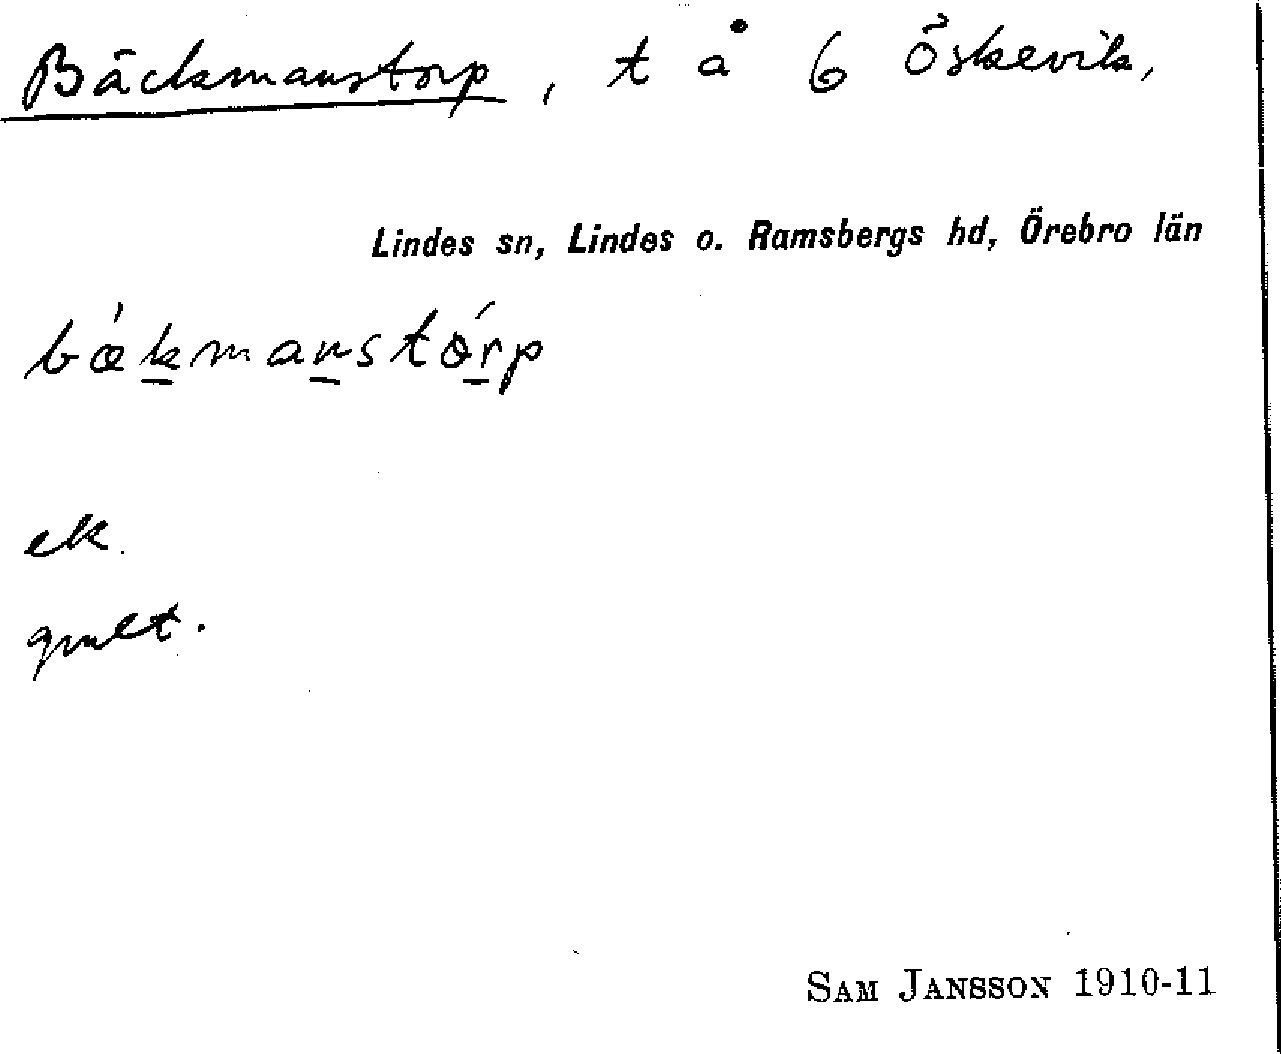 Bäckmanstorp, t å 6 Öskevik,
Lindes sn, Lindes o. Ramsbergs hd, Örebro län
bǽkmanstórp
ek.
gmlt.
SAM JANSSON 1910-11